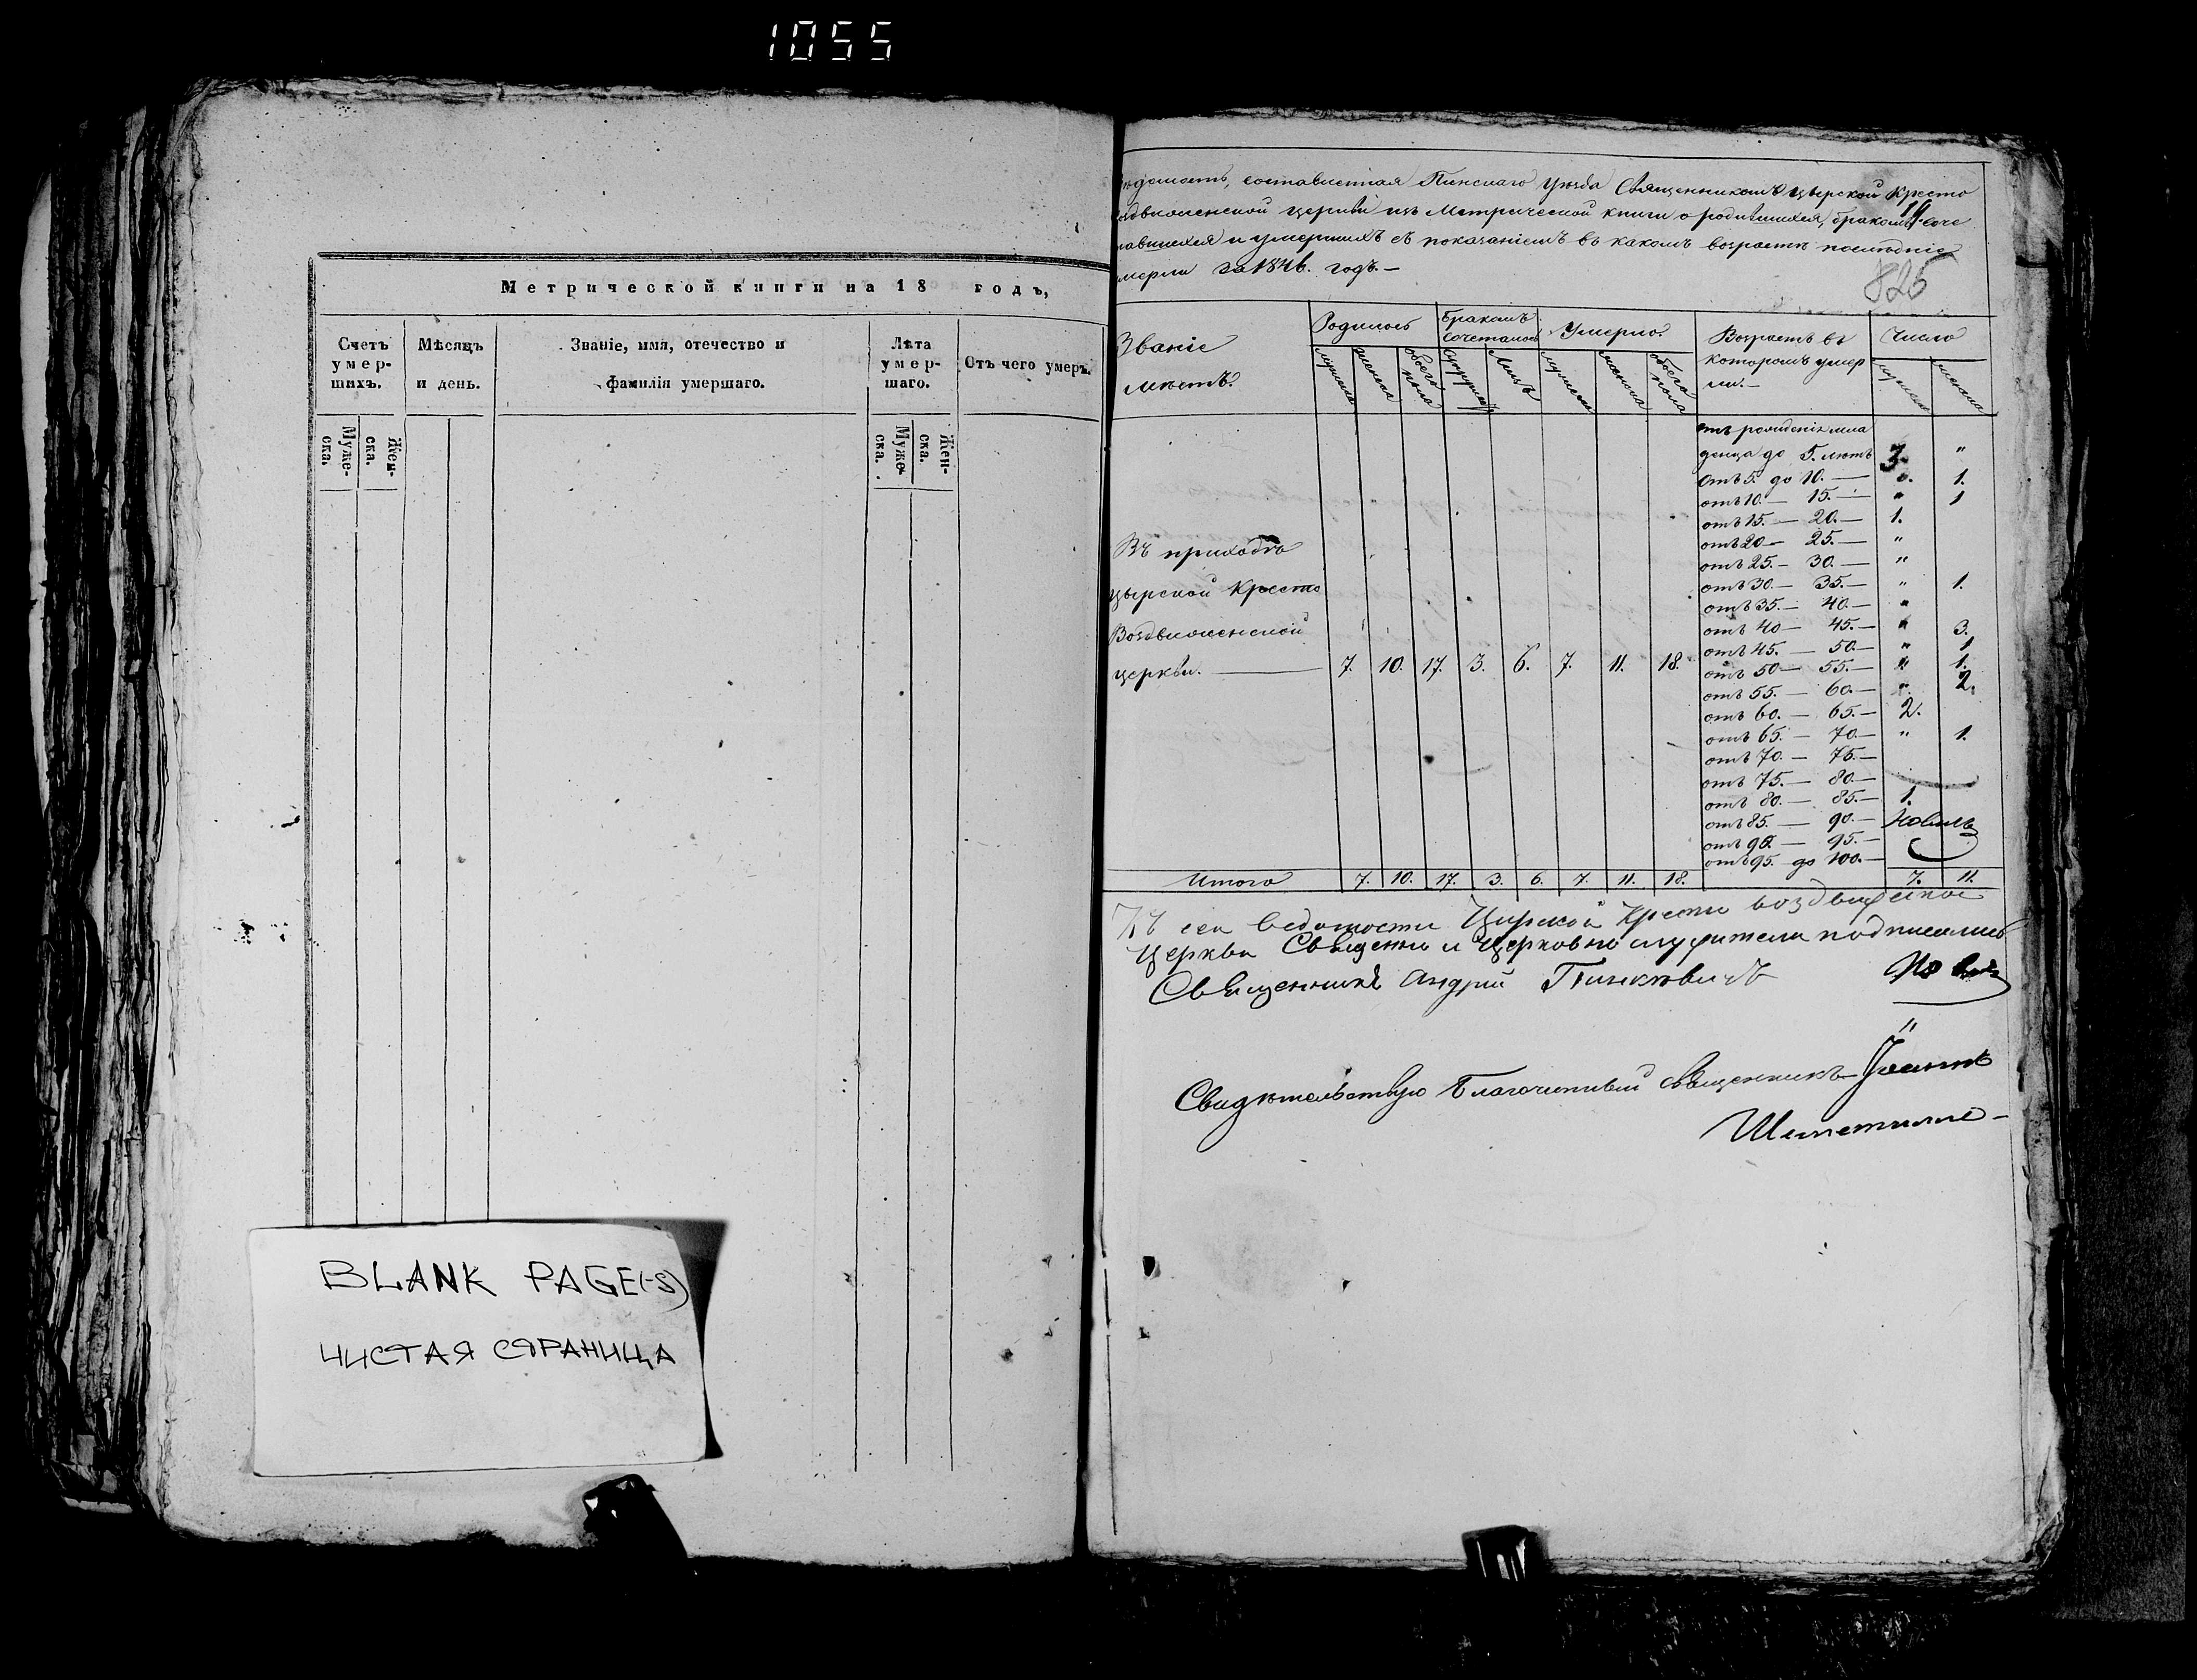 1055
Метрической книги на 18 годъ,
Счетъ умер-шихъ.
Мѣсяцъ и день.
Званіе, имя, отечество и фамилія умершаго.
Лѣта умер-шаго.
Отъ чего умеръ.
Муже-ска.
Жен-ска.
Муже-ска.
Жен-ска.
BLANK PAGE(-S)
ЧИСТАЯ СТРАНИЦА
составленная Пинскаго уѣзда Священникомъ Цырской Кресто
церкви изъ Метрической книги о родившихся, бракомъ соче
и умершихъ съ показаніемъ въ какомъ возрастѣ послѣдніе
за 1846. годъ.—
825
Званіе мѣстъ.
Родилось
Бракомъ сочеталось
Умерло.
Возрастъ въ которомъ умер ли.—
Число
мужска
женска
обоего пола
Лицъ
мужска
женска
обоего пола
мужска
женска
отъ рожденія мла
денца до 5. лѣтъ 3. "
отъ 5. до 10.— ". 1.
отъ 10.— 15.— " 1
отъ 15.— 20.— 1.
отъ 20— 25.— "
отъ 25.— 30.— "
отъ 30.— 35.— " 1.
отъ 35.— 40.— "
отъ 40— 45.— " 3.
отъ 45.— 50.— " 1
отъ 50— 55.— " 1.
отъ 55.— 60.— " 2.
отъ 60.— 65.— 2.
отъ 65.— 70.— " 1.
отъ 70.— 75.—
отъ 75.— 80.—
отъ 80.— 85.— 1.
отъ 85.— 90.—
отъ 90.— 95.—
отъ 95. до 100.—
Въ приходѣ
Цырской Кресто
Воздвиженской
церкви. — 7. 10. 17. 3. 6. 7. 11. 18.
Итого 7. 10. 17. 3. 6. 7. 11. 18. 7. 11.
Къ сей ведомости Цирской Кресто воздвиженской
Церкви Священно и Церковно служители подписались
Священникъ Андрей Пинкевичъ
Свидѣтельствую Благочинный Священникъ Іоаннъ